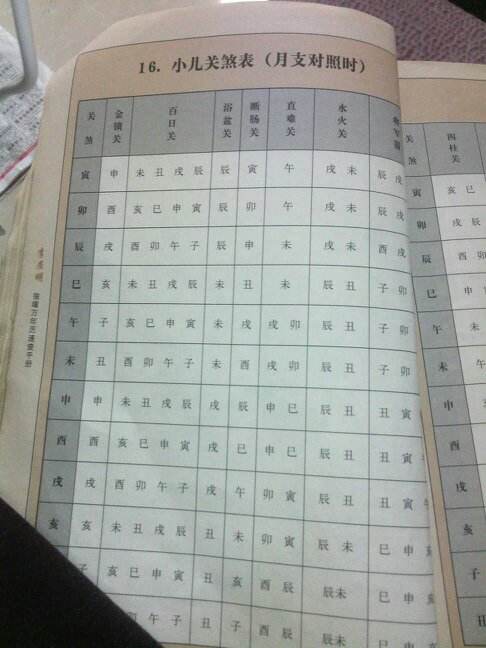 16. 小儿关煞表（月支对照时）
关煞 金锁关 百日关 浴盆关 断肠关 直难关 水火关
寅 申 未 丑 戌 辰 辰 寅 午 戌 未 辰 戌
卯 酉 亥 巳 申 寅 辰 卯 午 戌 未 辰 戌
辰 戌 酉 卯 午 子 辰 申 未 戌 未 酉 戌
巳 亥 未 丑 戌 辰 未 丑 未 辰 丑 子 卯
午 子 亥 巳 申 寅 未 戌 戌 卯 辰 丑 子 卯
未 丑 酉 卯 午 子 未 酉 戌 卯 辰 丑 子 卯
申 申 未 丑 戌 辰 戌 辰 申 巳 辰 丑 丑 寅
酉 酉 亥 巳 申 寅 戌 巳 申 巳 辰 丑 丑 寅
戌 戌 酉 卯 午 子 戌 午 卯 寅 辰 丑 丑 寅
亥 亥 未 丑 戌 辰 丑 未 卯 寅 辰 未 巳 申
子 亥 巳 申 寅 丑 亥 酉 辰 辰未 巳 申
卯 午 子 丑 子 酉 辰 辰未 巳 申
万年历速查手册
关煞 四柱关
寅 亥 巳
卯 戌 辰
辰 酉 卯
巳 申
午 未
未 午
申 巳
酉
戌
亥
子
丑